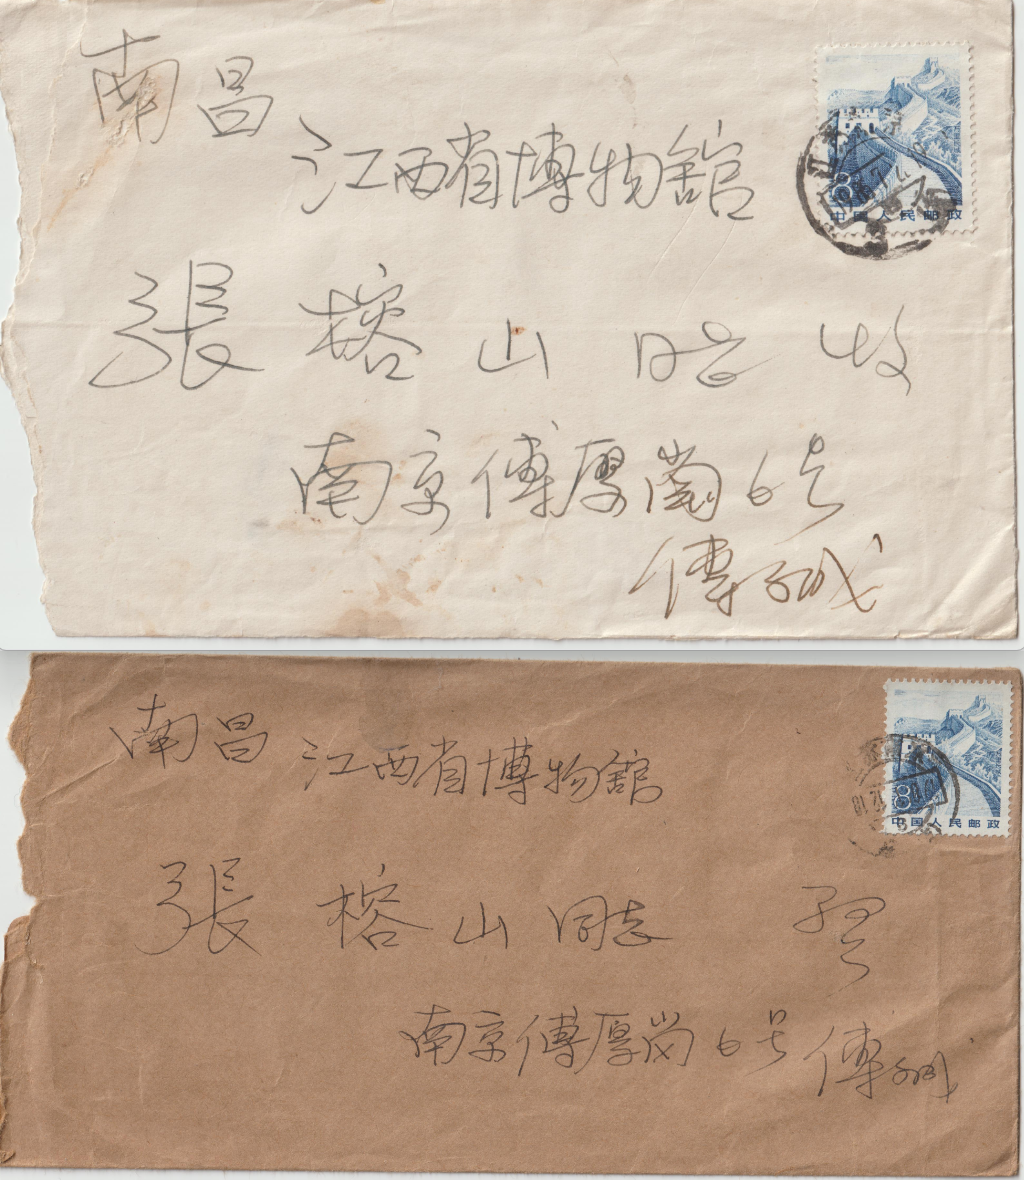 南昌
江西省博物館
8
中国人民邮政
張榕山同志收
南京傅厚崗6号
傅
南昌 江西省博物館
8
中国人民邮政
張榕山同志
南京傅厚岗6号 傅